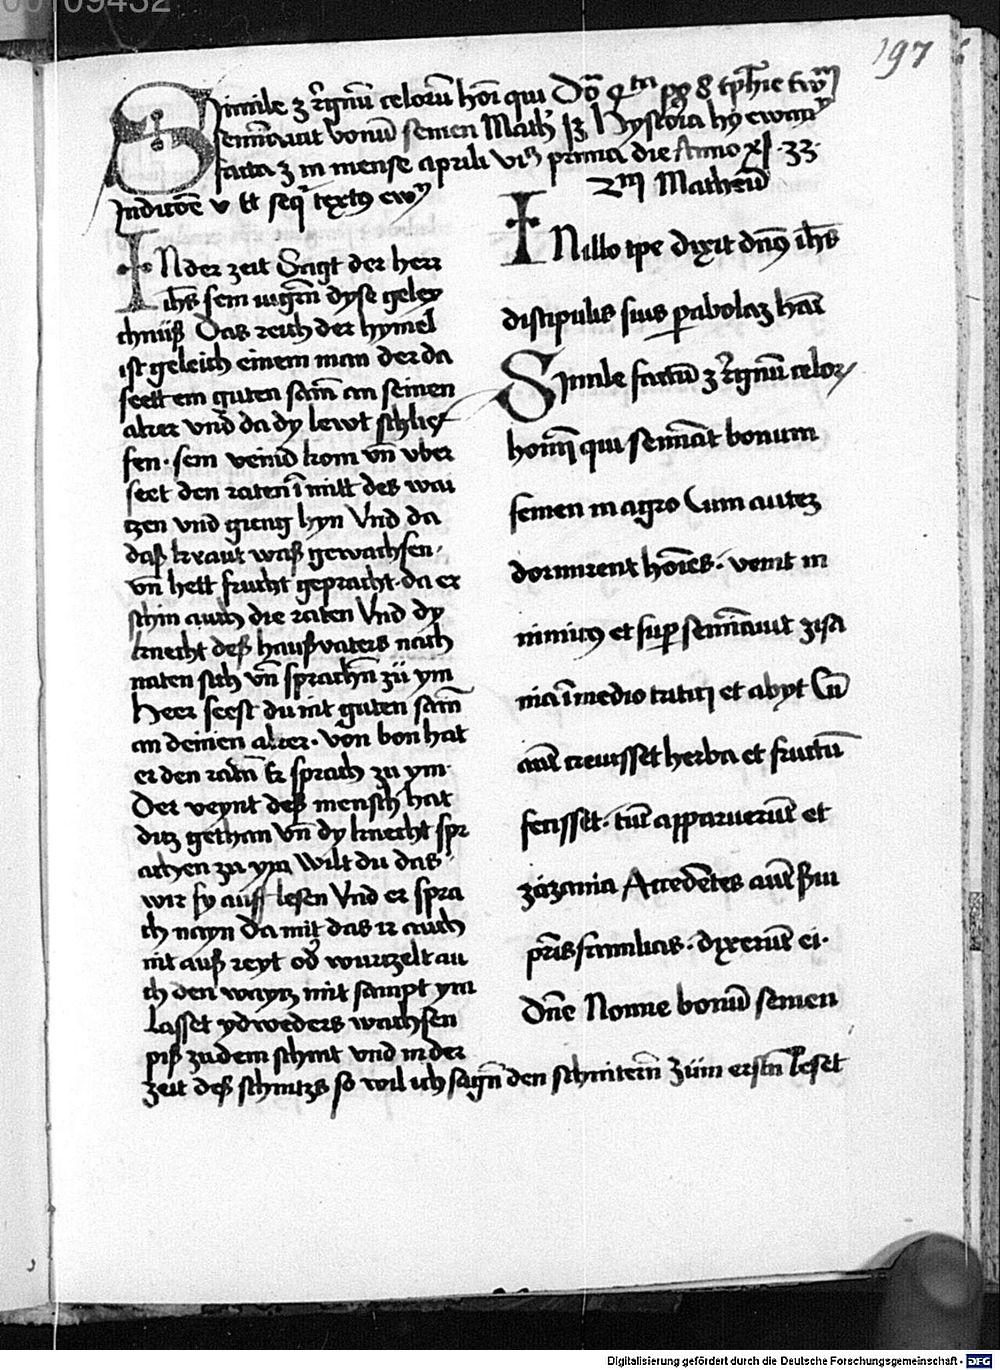 197
Simile ʒ regnū celorū hōi qui Dō qtn pꝰ 8 epiphīe
seminauit bonū semen Math 13 Hystoria hꝰ ewan
facta ʒ in mense aprili prima die Anno xl 33
Indicōe v Et seqr textꝰ ewͥ
IN der zeit Sagt der herr
ih̄s sein iūgern̄ dyse geley
chnüß Das reich der hymel
ist geleich einem man der da
seett ein guten sam̄ an seinen
aker vnd da dy lewt schlief
fen · sein veind kom vn̄ vber
seet den raten ī mitt des wai
tzen vnd gieng hyn Vnd da
daß kraut waß gewachsen ·
vn̄ hett frucht gepracht · da er
schin auch die raten Vnd dy
knecht deß haußvaters nach
naten sich vn̄ sprachn̄ zü ym
Heer seest du nit guten sam̄
an deinen aker · von bon hat
er den ratn̄ Er sprach zu ym
Der veynt deß mensch hat
ditz gethan Vn̄ dy knecht spr
achen zu ym Wilt du das
wir sy auff lesen Vnd er spra
ch nayn Da mit das ir auch
nit auß reyt od wurtzelt au
ch den waytz mit sampt ym
Lasset ydweders wachsen
piß zu dem schnit vnd in der
zeit deß schnitzs so wil ich sagn̄ den schnitern̄ Züm erstn̄ leset
2m Matheū
IN illo tpe dixit dn̄s ih̄s
discipulis suis parabolaʒ hanc
Simile factū ʒ regnū celoꝝ
homī qui semīat bonum
semen in agro Cum auteʒ
dormirent hoīes · venit in
nimicꝰ et supseminauit ziza
nia ī medio tritici et abyt Cū
aūt creuisset herba et fructū
fecisset · tūc apparuerūt et
zizania Accedētes aūt ẜui
pr̄isfamilias · dixerūt ei ·
Dn̄e Nonne bonū semen
Digitalisierung gefördert durch die Deutsche Forschungsgemeinschaft - DFG